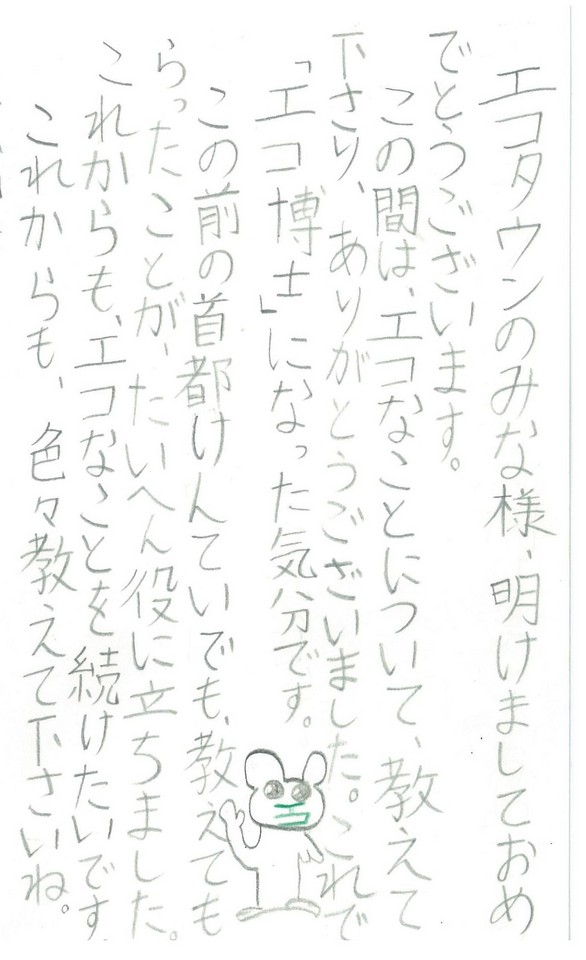 エコタウンのみな様、明けましておめ
でとうございます。
この間は、エコなことについて、教えて
下さり、ありがとうございました。これで
「エコ博士」になった気分です。
この前の首都けんていでも、教えても
らったことが、たいへん役に立ちました。
これからも、エコなことを続けたいです
これからも、色々教えて下さいね。
エコ